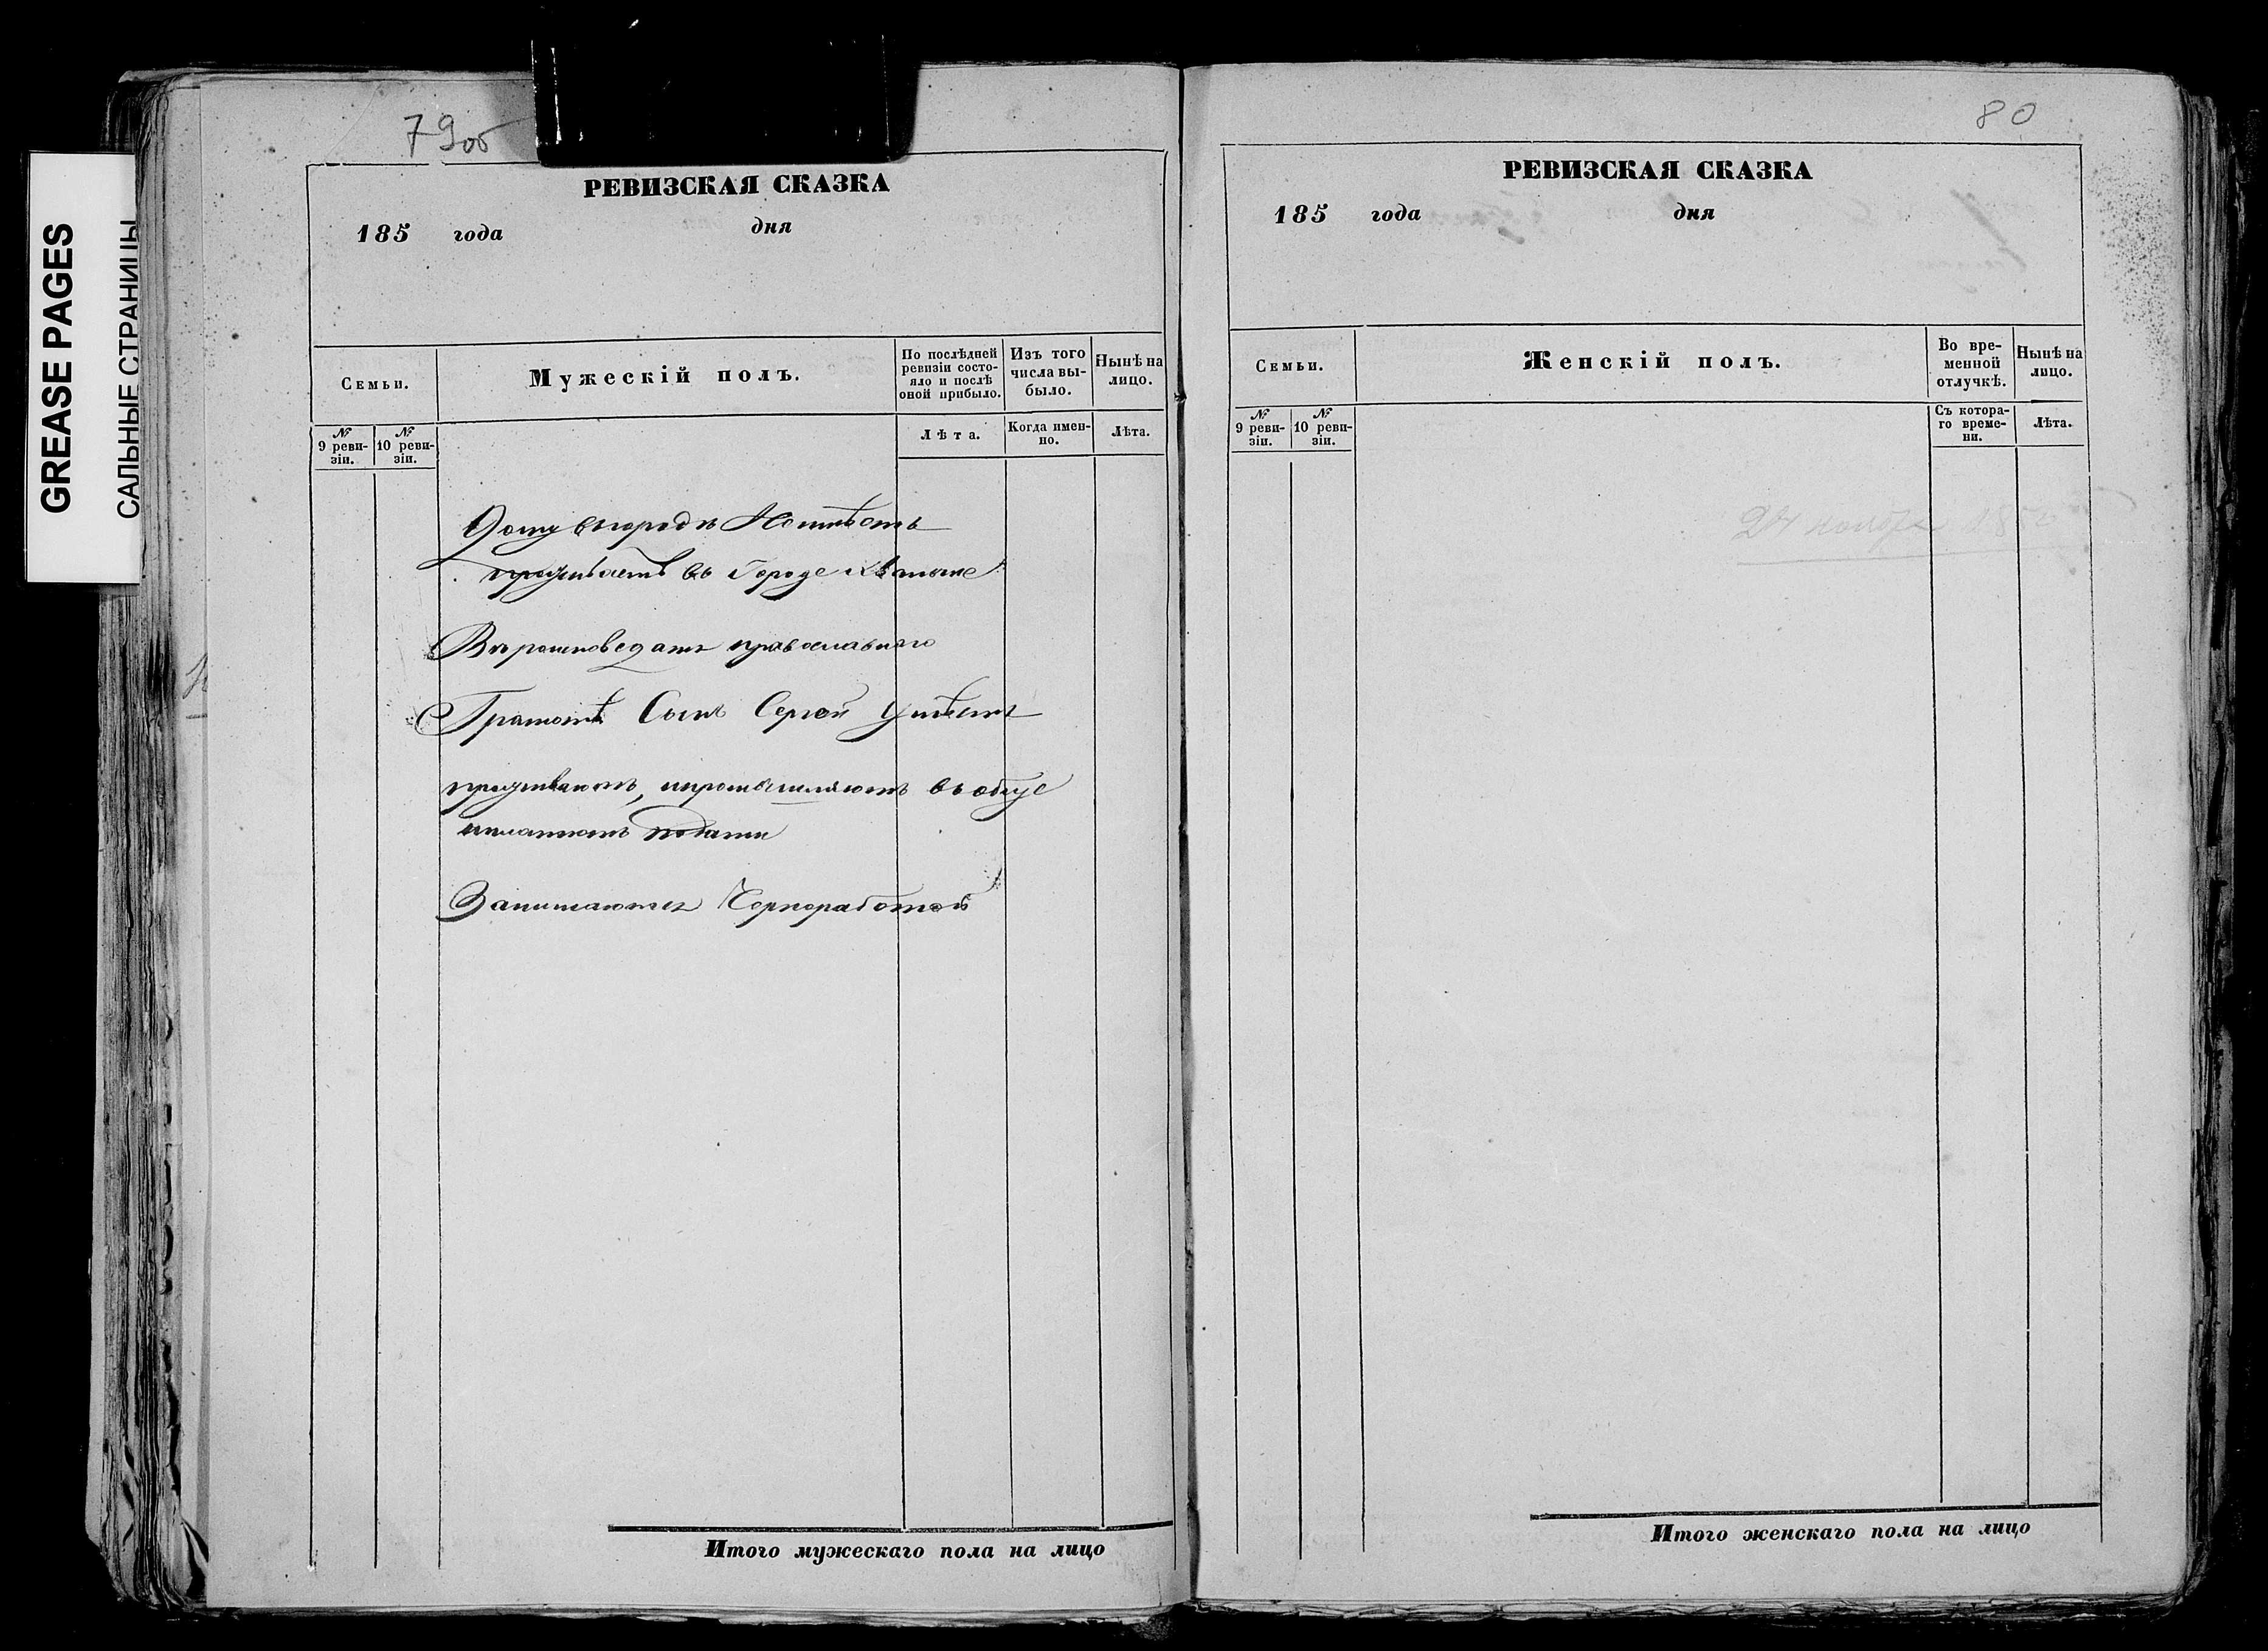 GREASE PAGES
САЛЬНЫЕ СТРАНИЦЫ
79об
РЕВИЗСКАЯ СКАЗКА
185 года дня
Семьи.
Мужескій полъ.
По послѣдней ревизіи состояло и послѣ оной прибыло.
Изъ того числа выбыло.
Нынѣ на лицо.
№ 9 ревизіи.
№ 10 ревизіи.
Лѣта.
Когда именно.
Лѣта.
Дому въ городѣ Неимѣетъ
проживаетъ въ Городе
Вѣроисповедатъ православнаго
Грамотѣ Сынъ Сергей Умѣетъ
проживаютъ, ипромышляютъ въ обще
иплатютъ подати
Занимаются Чорноработой
Итого мужескаго пола на лицо
80
РЕВИЗСКАЯ СКАЗКА
185 года дня
Семьи.
Женскій полъ.
Во временной отлучкѣ.
Нынѣ на лицо.
№ 9 ревизіи.
№ 10 ревизіи.
Съ котораго времени.
Лѣта.
24 ноября
Итого женскаго пола на лицо